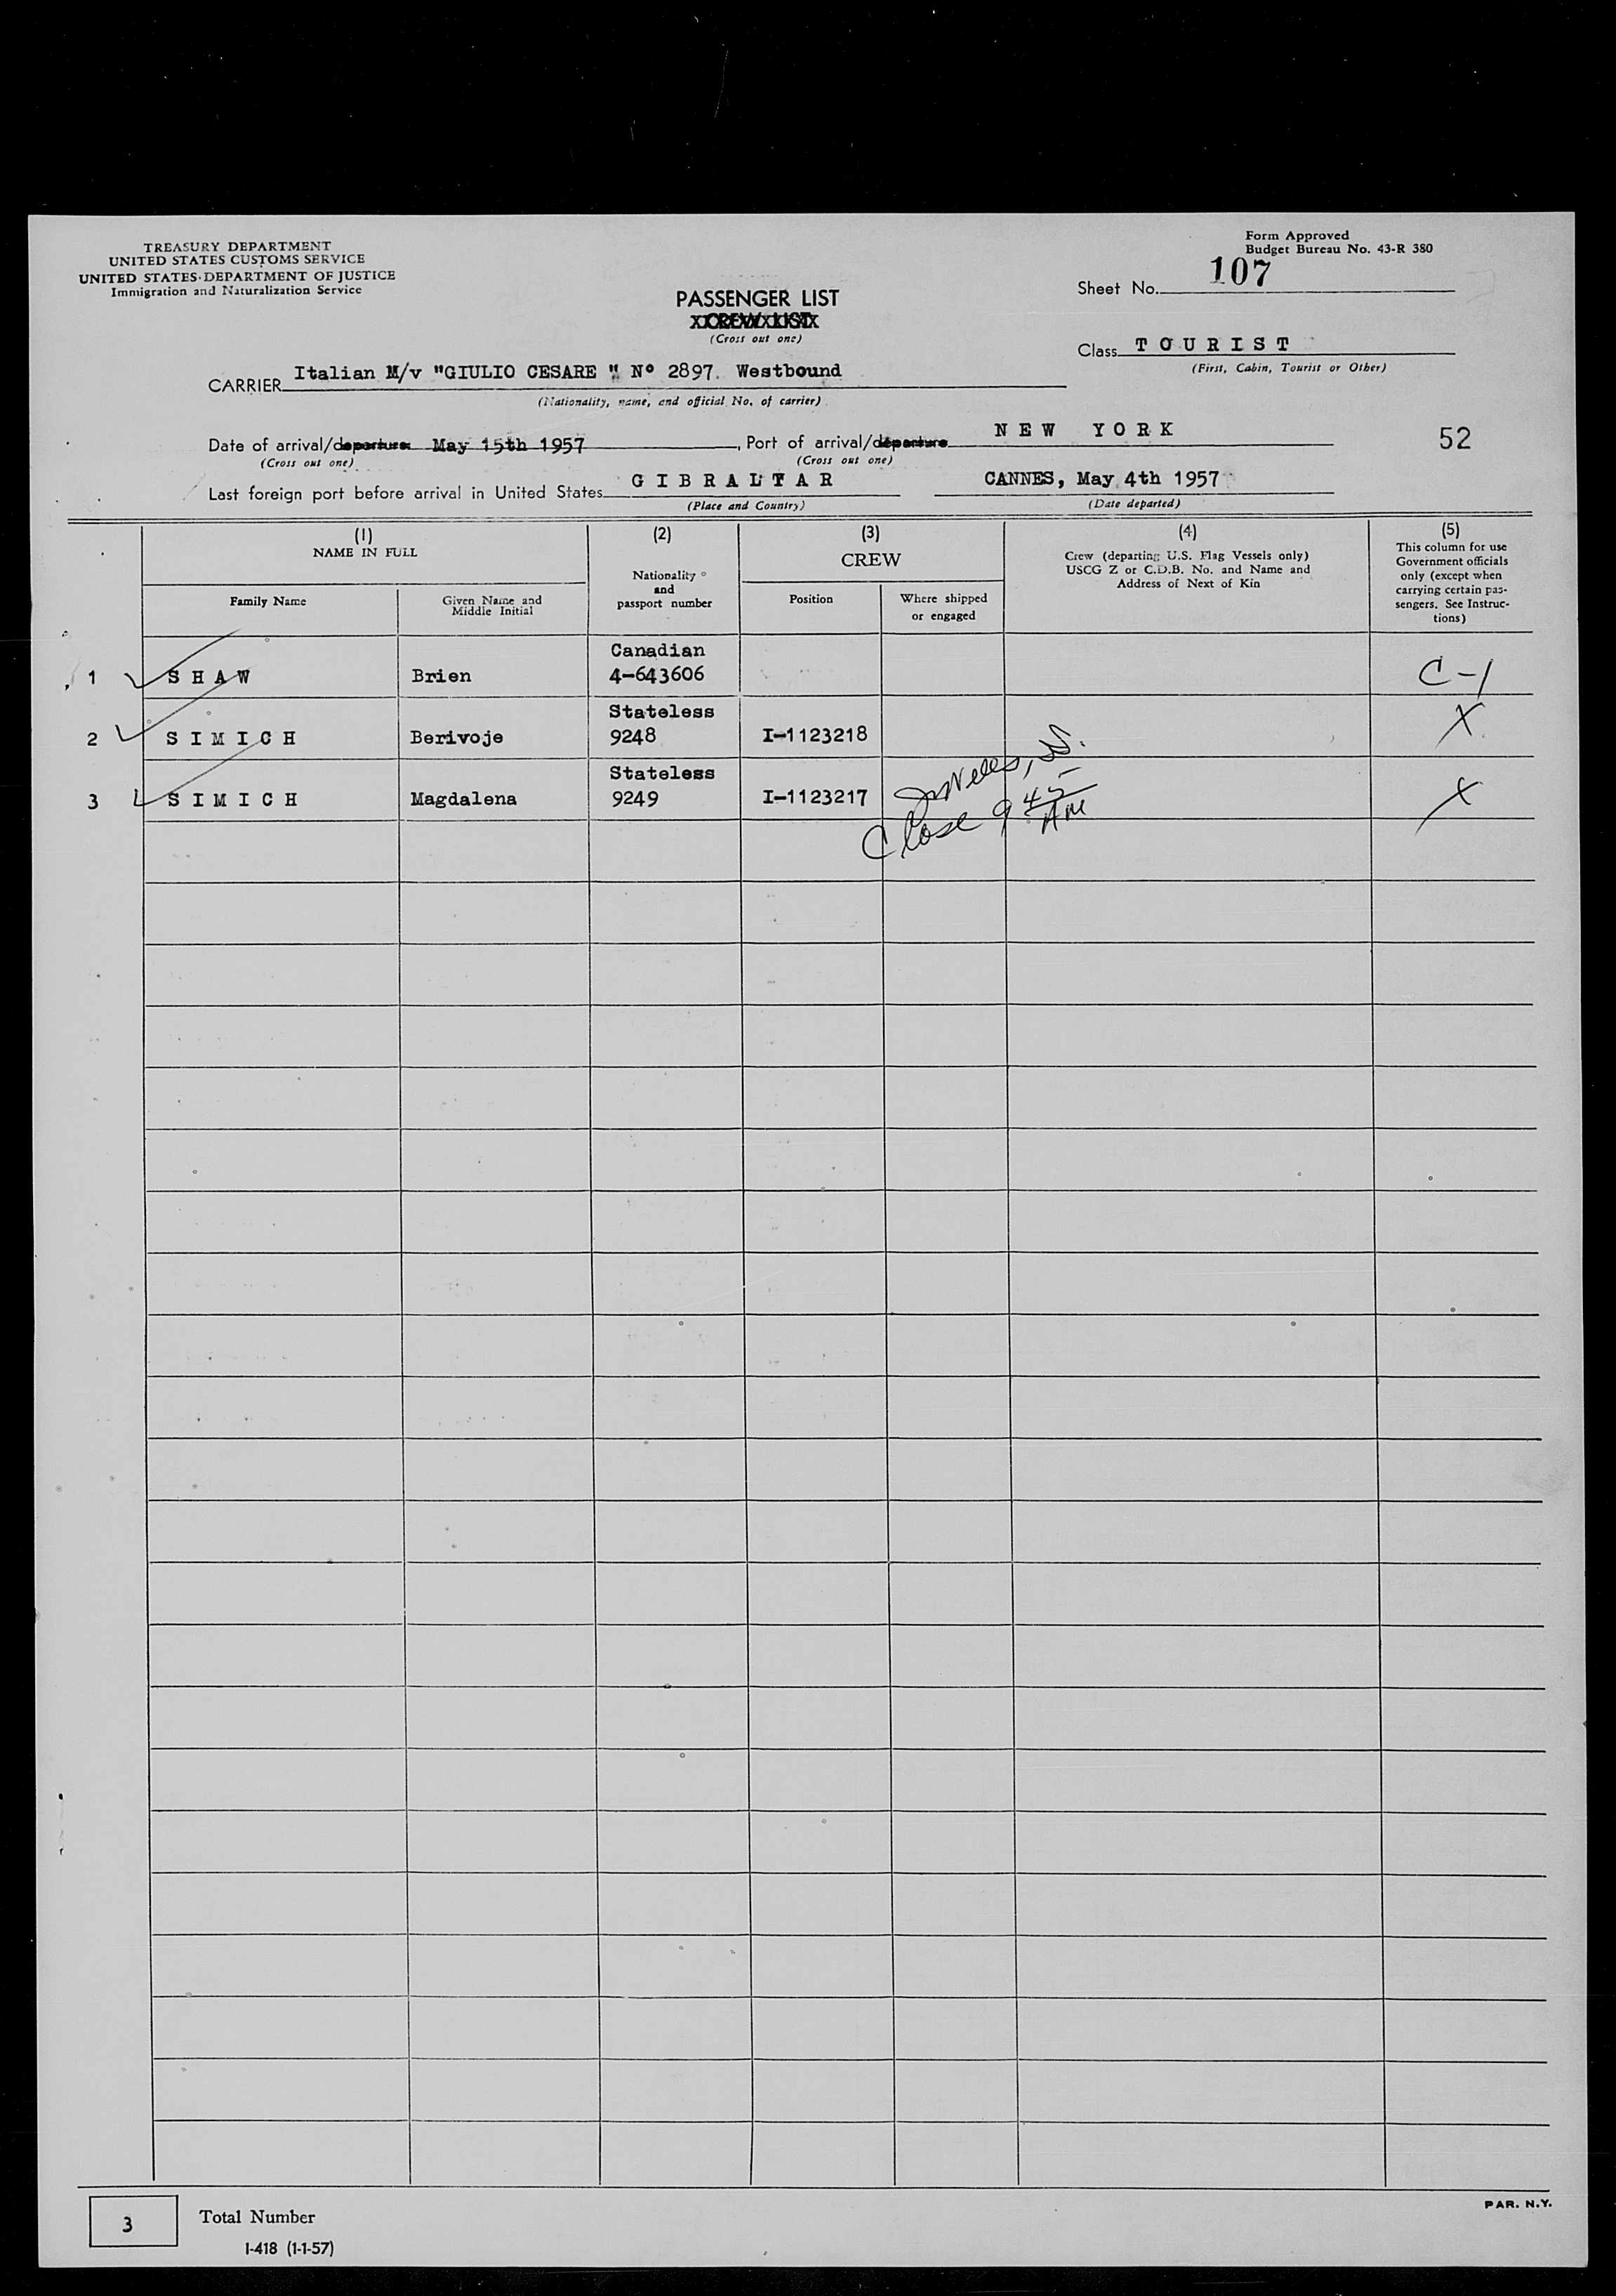 TREASURY DEPARTMENT
UNITED STATES CUSTOMS SERVICE
UNITED STATES DEPARTMENT OF JUSTICE
Immigration and Naturalization Service
Form Approved
Budget Bureau No. 43-R 380
Sheet No. 107
PASSENGER LIST
CREW LIST
(Cross out one)
Class TOURIST
(First, Cabin, Tourist or Other)
CARRIER Italian M/v "GIULIO CESARE " Nº 2897. Westbound
(Nationality, name, and official No. of carrier)
Date of arrival/departure May 15th 1957, Port of arrival/departure NEW YORK
(Cross out one) (Cross out one)
52
Last foreign port before arrival in United States GIBRALTAR CANNES, May 4th 1957
(Place and Country) (Date departed)
(1) NAME IN FULL
Family Name
Given Name and Middle Initial
(2) Nationality and passport number
(3) CREW
Position
Where shipped or engaged
(4) Crew (departing U.S. Flag Vessels only) USCG Z or C.D.B. No. and Name and Address of Next of Kin
(5) This column for use Government officials only (except when carrying certain pas- sengers. See Instruc- tions)
1 SHAW Brien Canadian 4-643606 C-1
2 SIMICH Berivoje Stateless 9248 I-1123218 X
3 SIMICH Magdalena Stateless 9249 I-1123217 X
Close 9 45 AM
3 Total Number
I-418 (1-1-57)
PAR. N.Y.